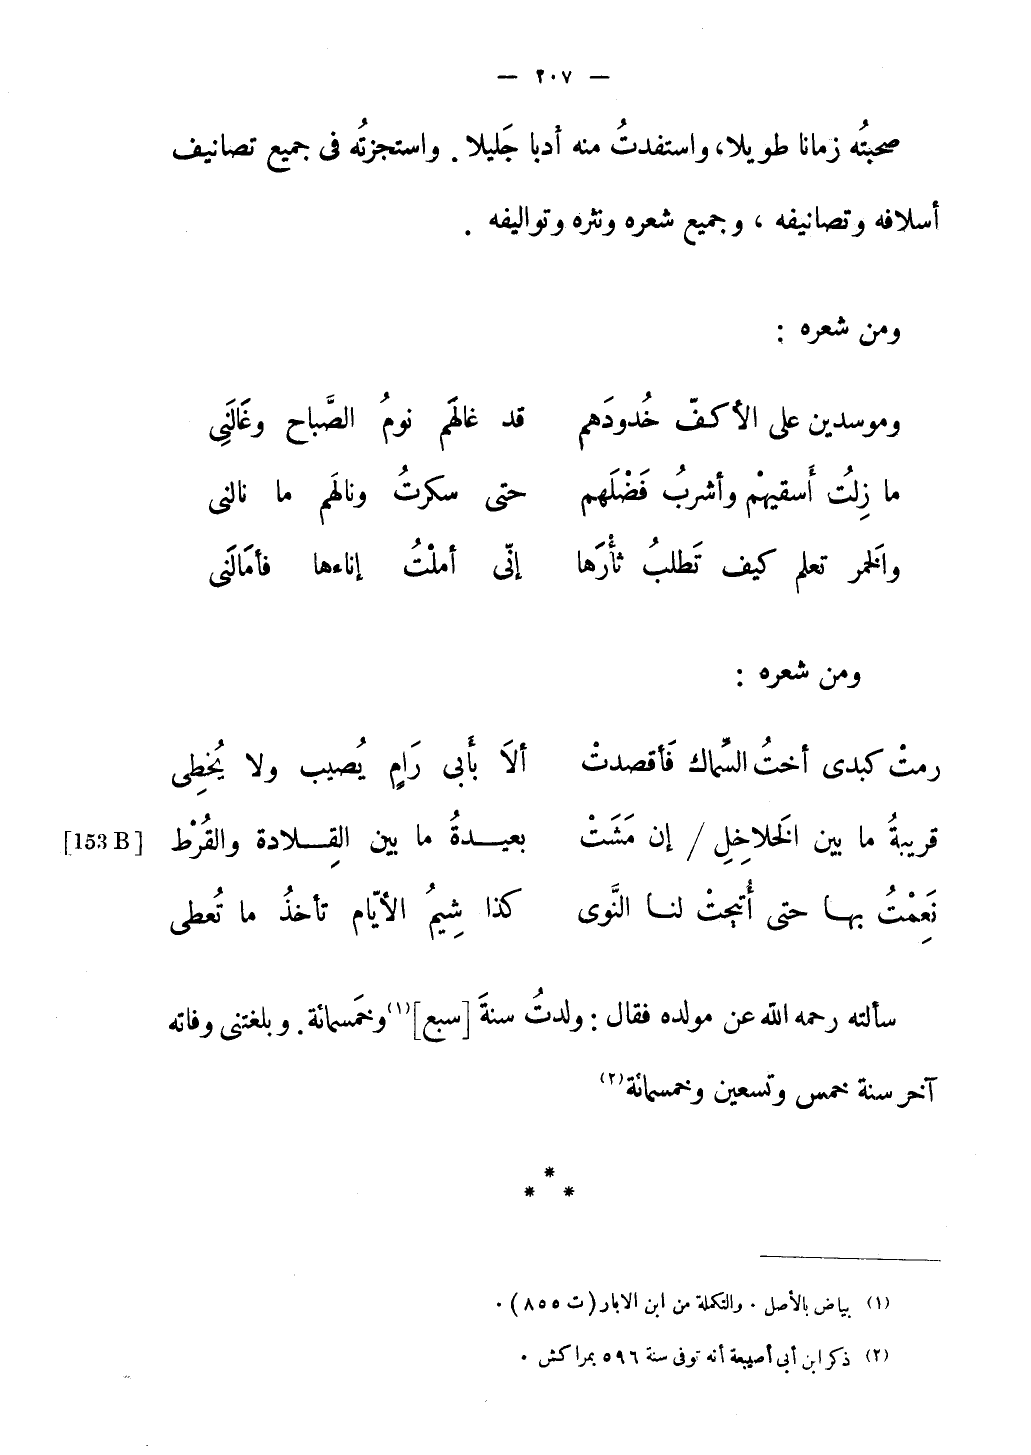 — ٢٠٧ —
صحبتُه زمانا طويلا، واستفدتُ منه أدبا جَليلا. واستجزتُه فى جميع تصانيف
أسلافه وتصانيفه ، وجميع شعره ونثره وتواليفه .
ومن شعره :
وموسدين على الأكفّ خُدودَهم قد غالهَم نومُ الصَّباح وغَالَنِى
ما زِلتُ أَسقيهمْ وأشربُ فَضْلَهم حتى سكرتُ ونالهَم ما نالنى
والَخمر تعلم كيف تَطلبُ ثأْرَها إنّى أملْتُ إناءها فأمَالَنى
ومن شعره :
رمتْ كبدى أختُ السِّماك فَأقصدتْ ألاَ بأَبى رَامٍ يُصيب ولا يُخطِى
قريبةُ ما بين الَخلاخِلِ / إن مَشَتْ بعيدةُ ما بين القِلادة والقُرْط [153 B]
نَعِمْتُ بها حتى أُتيحتْ لنا النَّوى كذا شِيمُ الأيّام تأخذُ ما تُعطى
سألته رحمه الله عن مولده فقال : ولدتُ سنةَ [سبع](١) وخَمسمائة. وبلغتنى وفاته
آخر سنة خمس وتسعين وخمسمائة(٢)
*
* *
(١) بياض بالأصل . والتكملة من ابن الابار (ت ٨٥٥) .
(٢) ذكر ابن أبى أصيبعة أنه توفى سنة ٥٩٦ بمراكش .